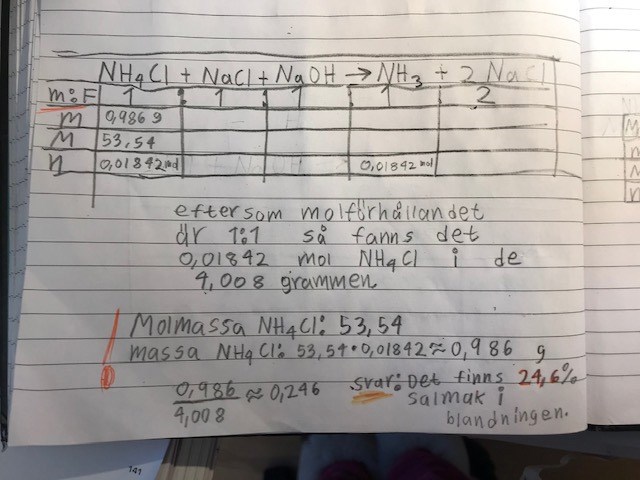 NH4Cl + NaCl + NaOH → NH3 + 2 NaCl
m:F 1 : 1 : 1 1 : 2
m 0,986 g
M 53,54
n 0,01842 mol 0,01842 mol
eftersom molförhållandet
är 1:1 så fanns det
0,01842 mol NH4Cl i de
4,008 grammen
! Molmassa NH4Cl: 53,54
massa NH4Cl: 53,54 • 0,01842 ≈ 0,986 g
0,986
4,008
≈ 0,246
svar: Det finns 24,6%
salmak i
blandningen.
141